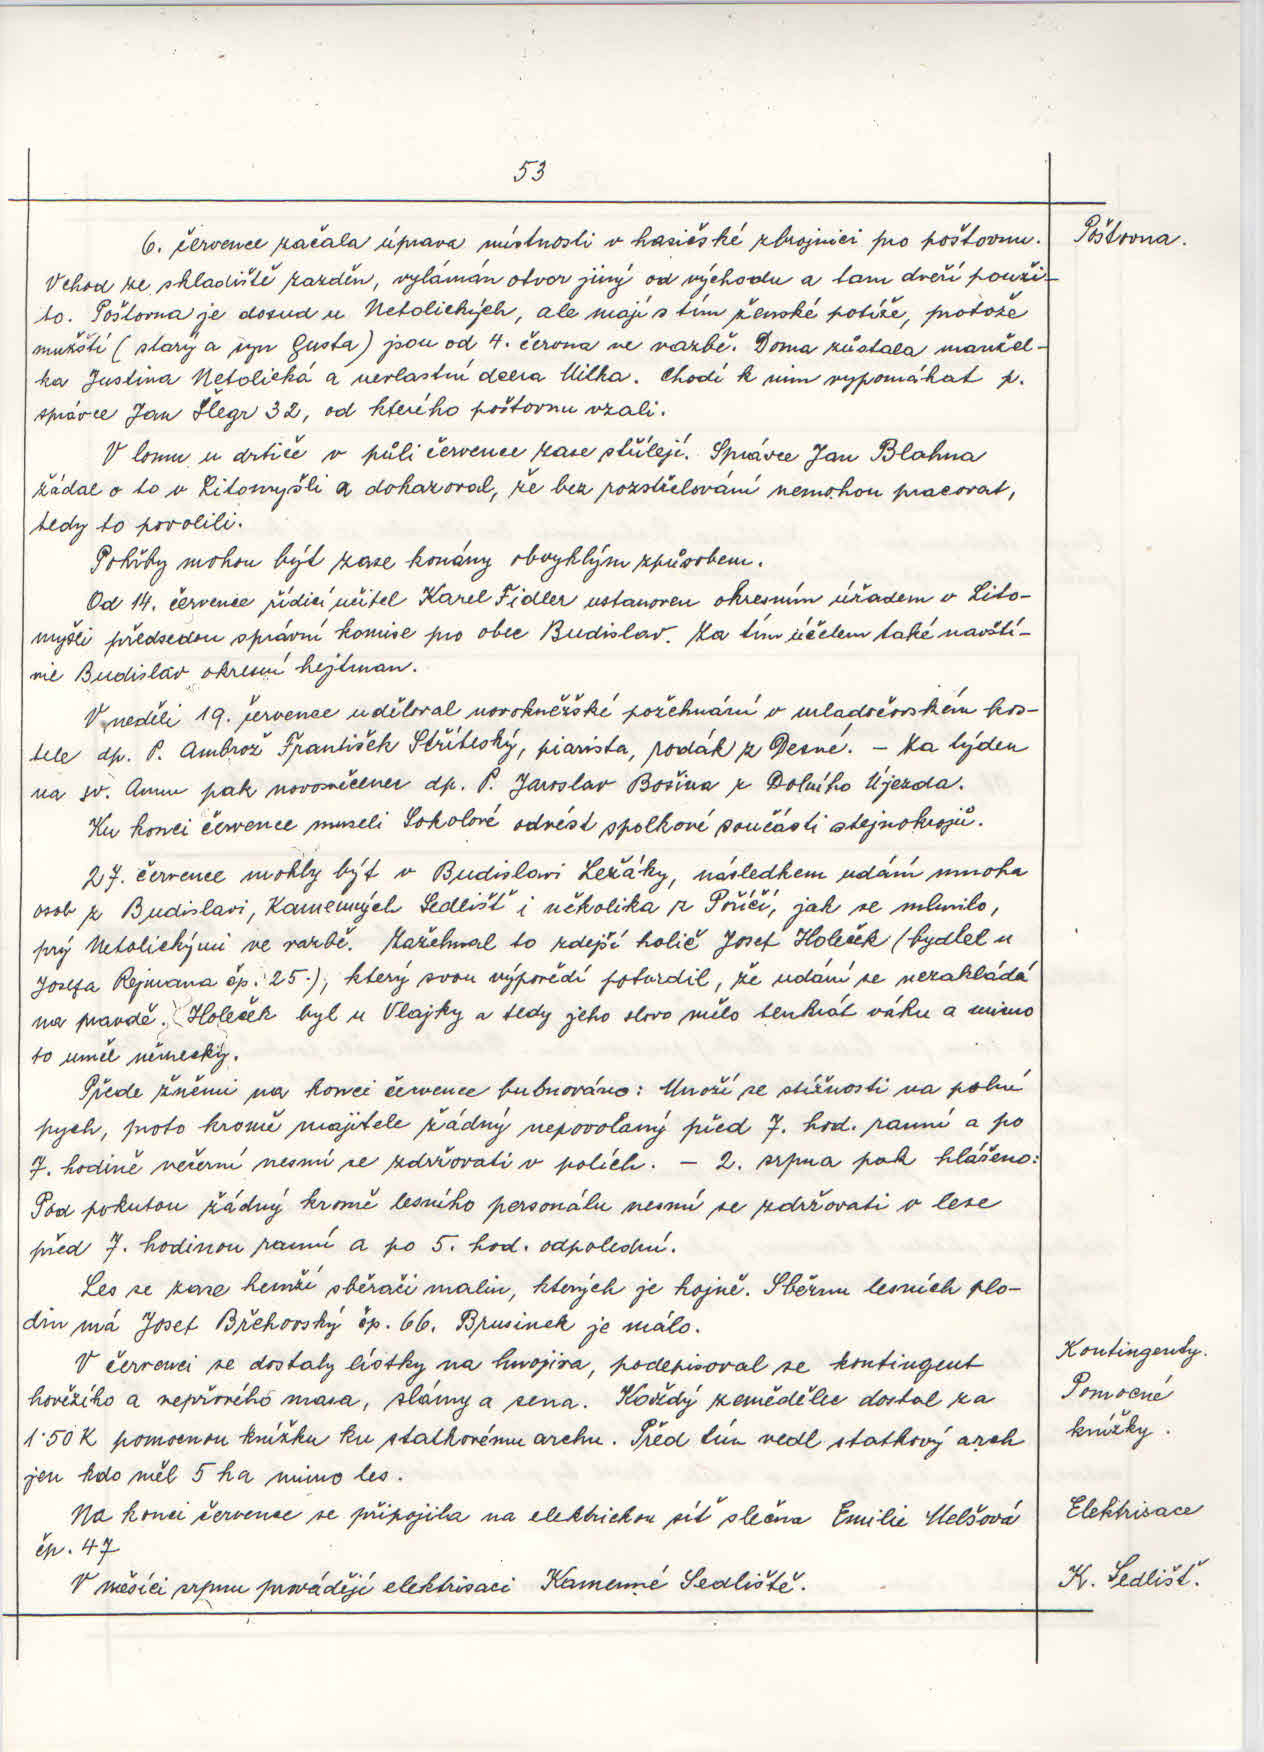 53
6. července začala úprava místnosti v hasičské zbrojnici pro poštovnu.
Poštovna.
Vchod ze skladiště zazděn, vylámán otvor jiný od východu a tam dveří použi-
to. Poštovna je dosud u Netolických, ale mají s tím ženské potíže, protože
mužští (starý a syn Gusta) jsou od 4. června ve vazbě. Doma zůstala manžel-
ka Justina Netolická a nevlastní dcera Milka. Chodí k nim vypomáhat p.
správce Jan Šlegr 32, od kterého poštovnu vzali.
V lomu u drtiče v půli července zase střílejí. Správce Jan Blahna
žádal o to v Litomyšli a dokazoval, že bez rozstřelování nemohou pracovat,
tedy to povolili.
Pohřby mohou být zase konány obvyklým způsobem.
Od 14. července řídící učitel Karel Fidler ustanoven okresním úřadem v Lito-
myšli předsedou správní komise pro obec Budislav. Za tím účelem také navští-
vil Budislav okresní hejtman.
V neděli 19. července uděloval novokněžské požehnání v mladočovském kos-
tele dp. P. Ambrož František Stříteský, piarista, rodák z Desné. – Za týden
na sv. Annu pak novosvěcenec dp. P. Jaroslav Bošina z Dolního Újezda.
Ku konci července museli Sokolové odvést spolkové součásti stejnokrojů.
27. července mohly být v Budislavi Ležáky, následkem udání mnoha
osob z Budislavi, Kamenných Sedlišť i několika z Poříčí, jak se mluvilo,
prý Netolickými ve vazbě. Zažehnal to zdejší holič Josef Holeček (bydlel u
Josefa Rejmana čp. 25.), který svou výpovědí potvrdil, že udání se nezakládá
na pravdě. Holeček byl u Vlajky a tedy jeho slovo mělo tenkrát váhu a mimo
to uměl německy.
Přede žněmi na konci července bubnováno: Množí se stížnosti na polní
pych, proto kromě majitele žádný nepovolaný před 7. hod. ranní a po
7. hodině večerní nesmí se zdržovati v polích. – 2. srpna pak hlášeno:
Pod pokutou žádný kromě lesního personálu nesmí se zdržovati v lese
před 7. hodinou ranní a po 5. hod. odpolední.
Les se zase hemží sběrači malin, kterých je hojně. Sběrnu lesních plo-
din má Josef Břehovský čp. 66. Brusinek je málo.
V červenci se dostaly lístky na hnojiva, podepisoval se kontingent
Kontingenty.
hovězího a vepřového masa, slámy a sena. Každý zemědělec dostal za
Pomocné
1·50 K pomocnou knížku ku statkovému archu. Před tím vedl statkový arch
knížky.
jen kdo měl 5 ha mimo les.
Na konci července se připojila na elektrickou síť slečna Emilie Melšová
Elektrisace
čp. 47
V měsíci srpnu provádějí elektrisaci Kamenné Sedliště.
K. Sedlišť.